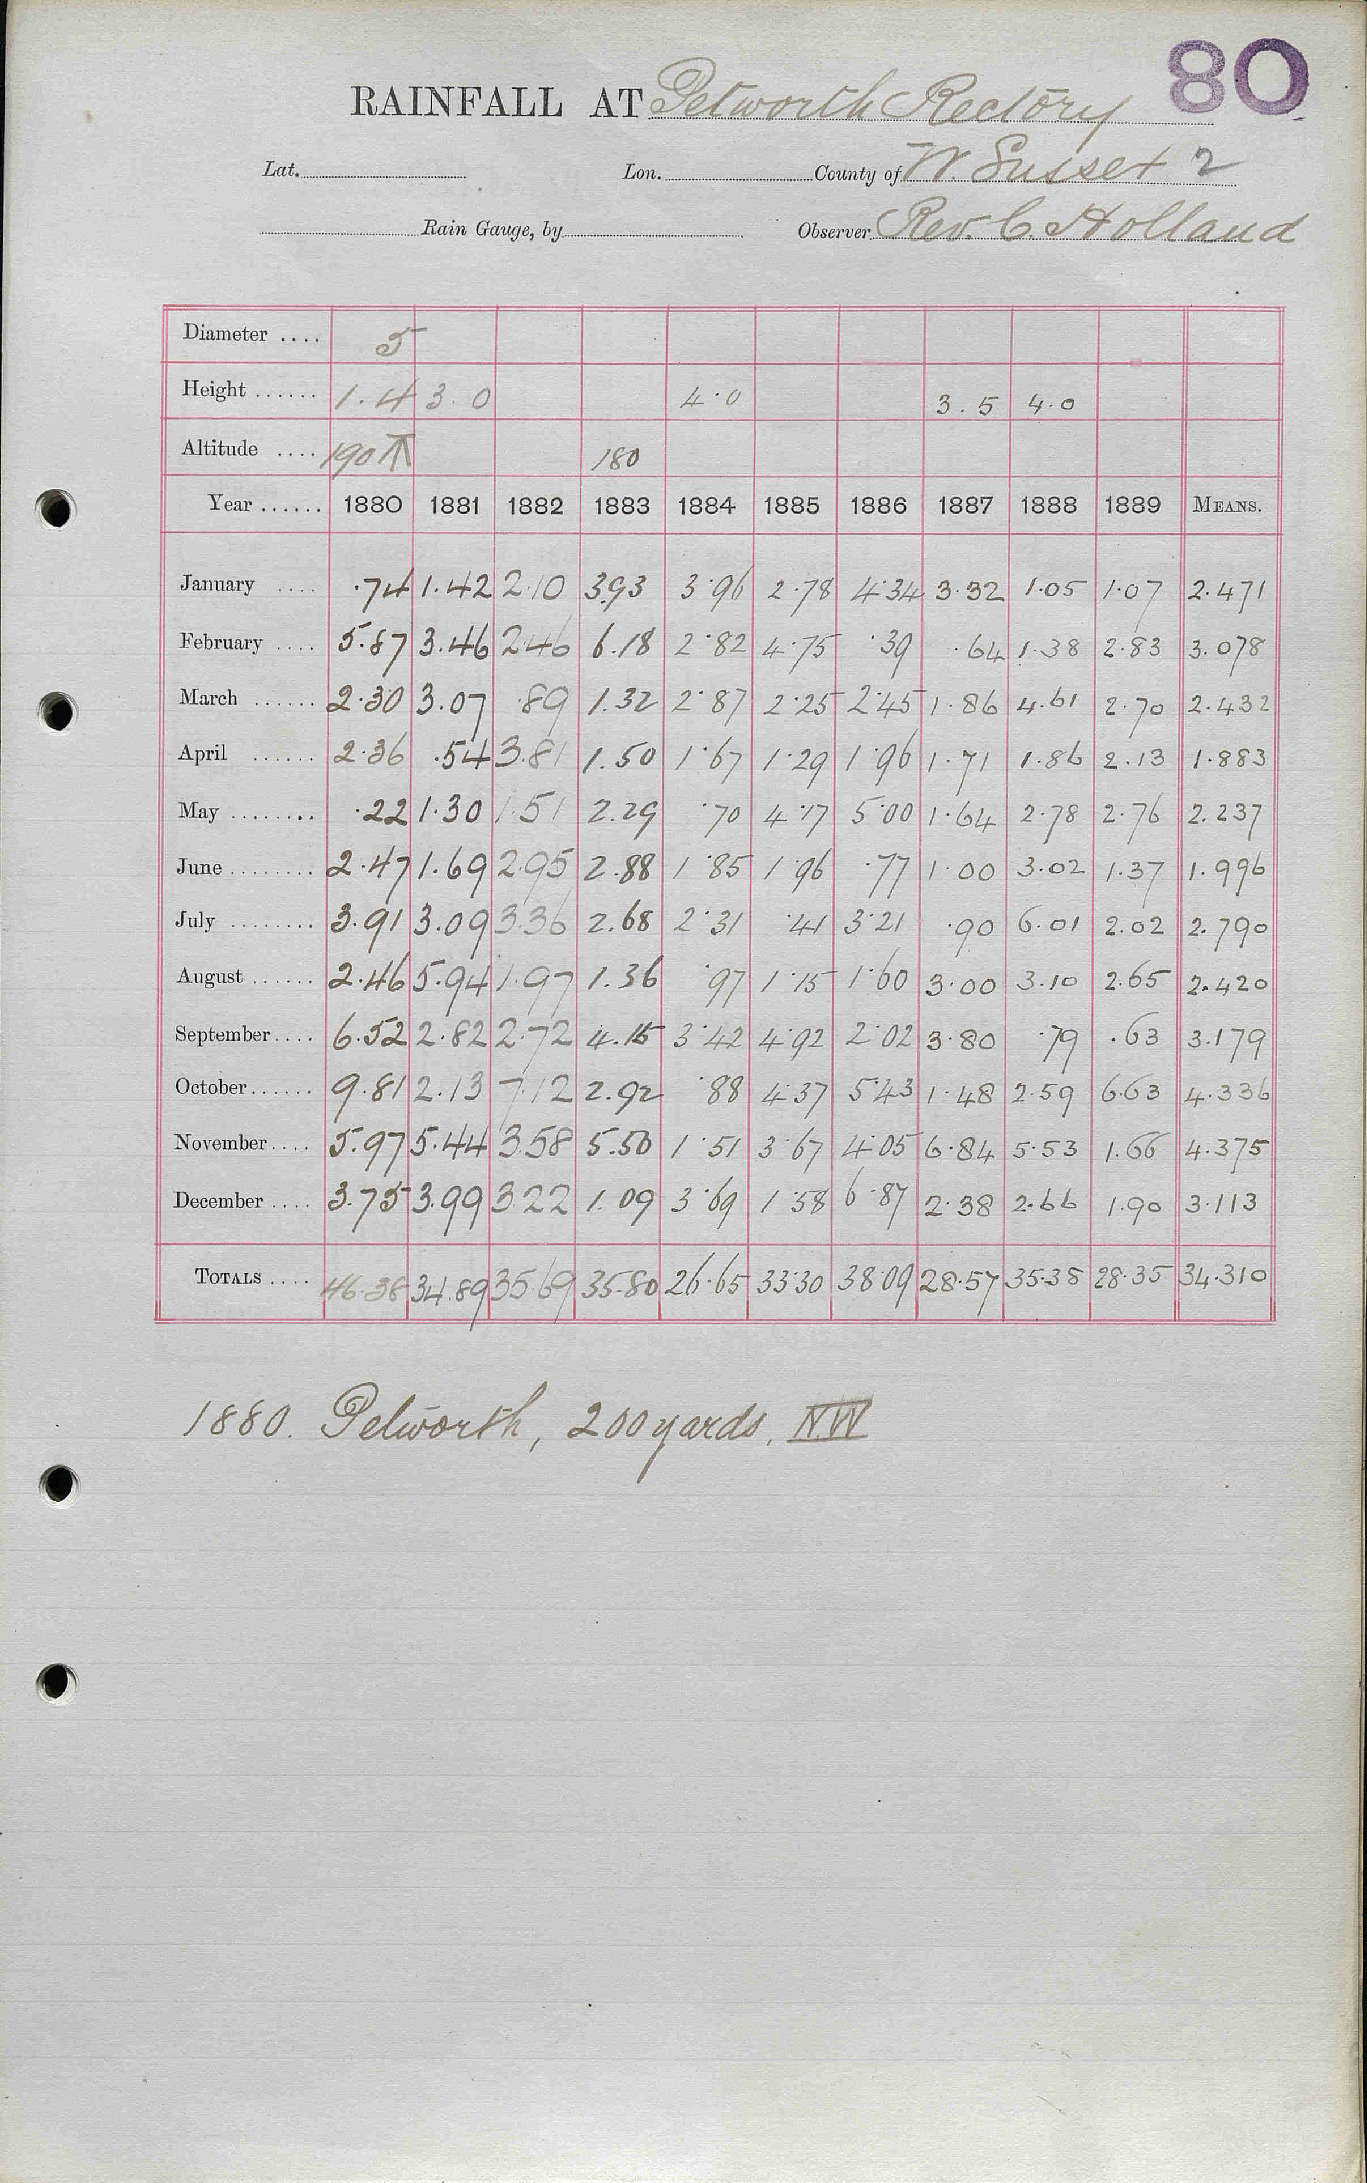 80
RAINFALL AT Petworth Rectory
Lat. Lon. County of W. Sussex 2
Rain Gauge, by Observer Rev. C. Holland
Diameter .... 5
Height ...... 1.4 3.0 4.0 3.5 4.0
Altitude .... 190 180
Year ...... 1880 1881 1882 1883 1884 1885 1886 1887 1888 1889 MEANS.
January .... .74 1.42 2.10 3.93 3.96 2.78 4.34 3.32 1.05 1.07 2.471
February .... 5.87 3.46 2.46 6.18 2.82 4.75 .39 .64 1.38 2.83 3.078
March ...... 2.30 3.07 .89 1.32 2.87 2.25 2.45 1.86 4.61 2.70 2.432
April ...... 2.36 .54 3.81 1.50 1.67 1.29 1.96 1.71 1.86 2.13 1.883
May ........ .22 1.30 1.51 2.29 .70 4.17 5.00 1.64 2.78 2.76 2.237
June ........ 2.47 1.69 2.95 2.88 1.85 1.96 .77 1.00 3.02 1.37 1.996
July ........ 3.91 3.09 3.36 2.68 2.31 .41 3.21 .90 6.01 2.02 2.790
August ...... 2.46 5.94 1.97 1.36 .97 1.15 1.60 3.00 3.10 2.65 2.420
September .... 6.52 2.82 2.72 4.15 3.42 4.92 2.02 3.80 .79 .63 3.179
October ...... 9.81 2.13 7.12 2.92 .88 4.37 5.43 1.48 2.59 6.63 4.336
November .... 5.97 5.44 3.58 5.50 1.51 3.67 4.05 6.84 5.53 1.66 4.375
December .... 3.75 3.99 3.22 1.09 3.69 1.58 6.87 2.38 2.66 1.90 3.113
TOTALS .... 46.38 34.89 35.69 35.80 26.65 33.30 38.09 28.57 35.38 28.35 34.310
1880. Petworth, 200 yards, N.W